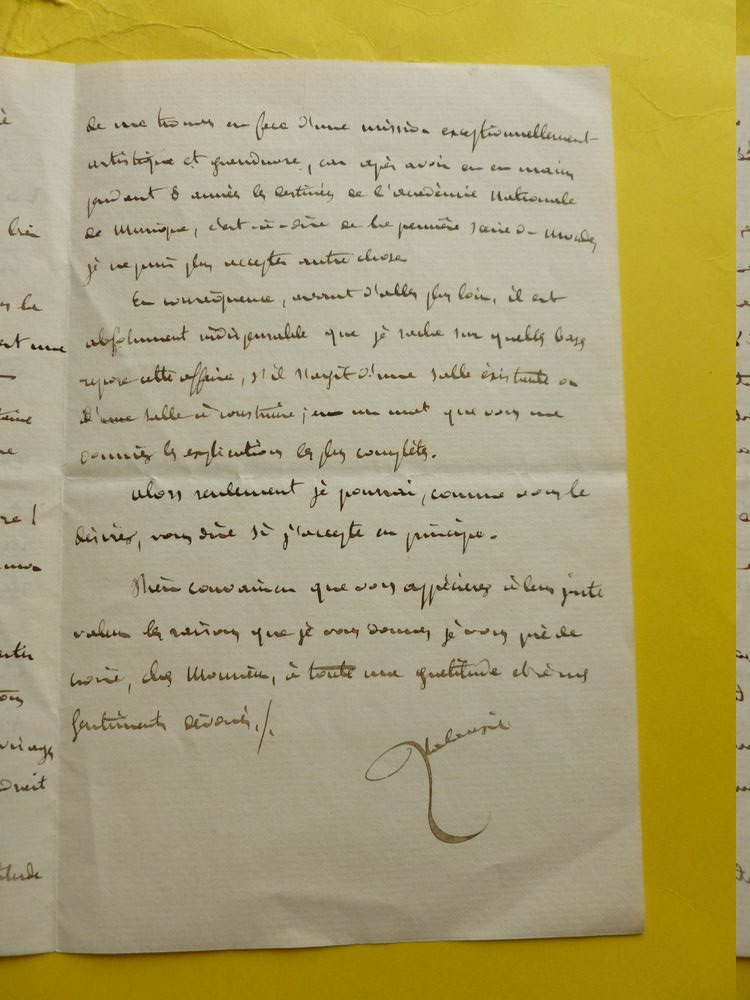 de me trouver en face d'une mission exceptionnellement
artistique et grandiose, car après avoir eu en mains
pendant 8 années les destinées de l'Académie Nationale
de Musique, c'est-à-dire de la première scène du Monde,
je ne puis plus accepter autre chose
En conséquence, avant d'aller plus loin, il est
absolument indispensable que je sache sur quelles bases
repose cette affaire, s'il s'agit d'une salle éxistante ou
d'une salle à construire; en un mot que vous me
donniez les explications les plus complètes.
Alors seulement je pourrai, comme vous le
désirez, vous dire si j'accepte en principe.
Bien convaincu que vous apprécierez à leur juste
valeur les raisons que je vous donnes je vous prie de
croire, cher Monsieur, à toute ma gratitude et à mes
sentiments dévoués./.